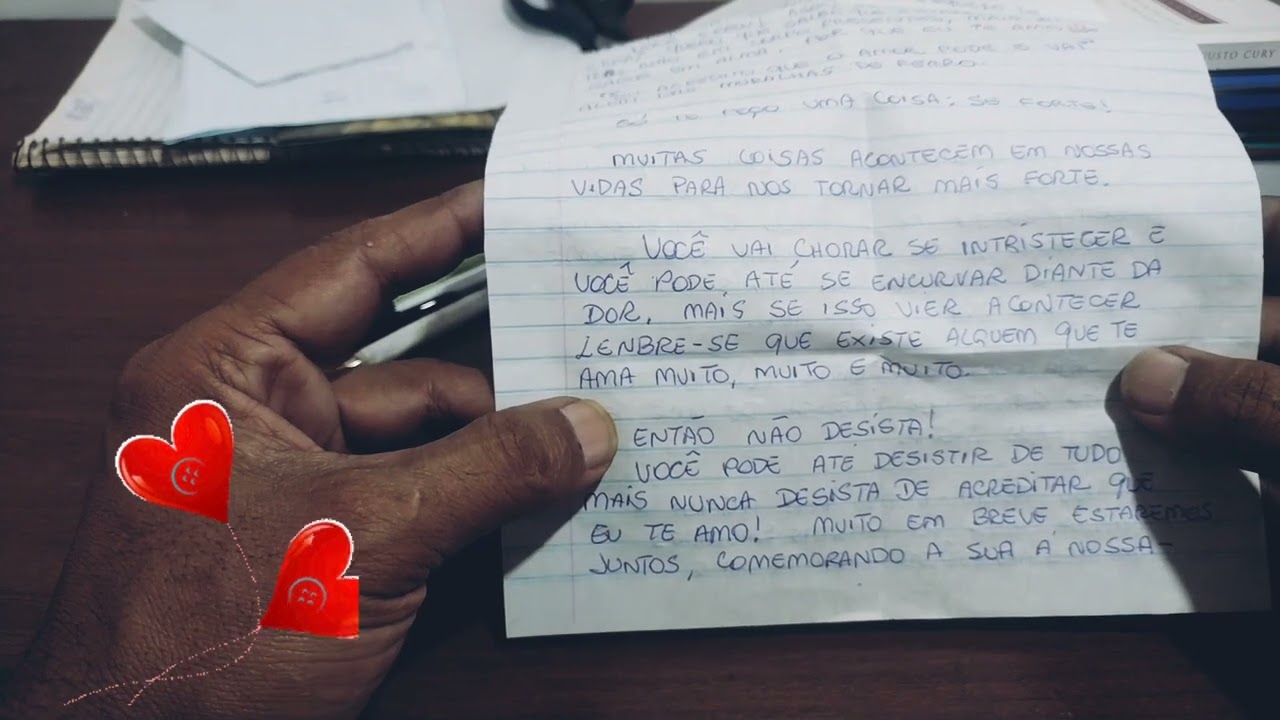 EU TE AMO
O AMOR PODE E VAI
ALÉM DAS MURALHAS DE
UMA COISA: SE FORTE!
USTO CURY
MUITAS COISAS ACONTECEM EM NOSSAS
VIDAS PARA NOS TORNAR MAIS FORTE.
VOCÊ VAI CHORAR SE INTRISTECER E
VOCÊ PODE, ATÉ SE ENCURVAR DIANTE DA
DOR, MAIS SE ISSO VIER ACONTECER
LENBRE-SE QUE EXISTE ALGUEM QUE TE
AMA MUITO, MUITO E MUITO.
ENTÃO NÃO DESISTA!
VOCÊ PODE ATÉ DESISTIR DE TUDO
MAIS NUNCA DESISTA DE ACREDITAR QUE
EU TE AMO! MUITO EM BREVE ESTAREMOS
JUNTOS, COMEMORANDO A SUA A NOSSA-